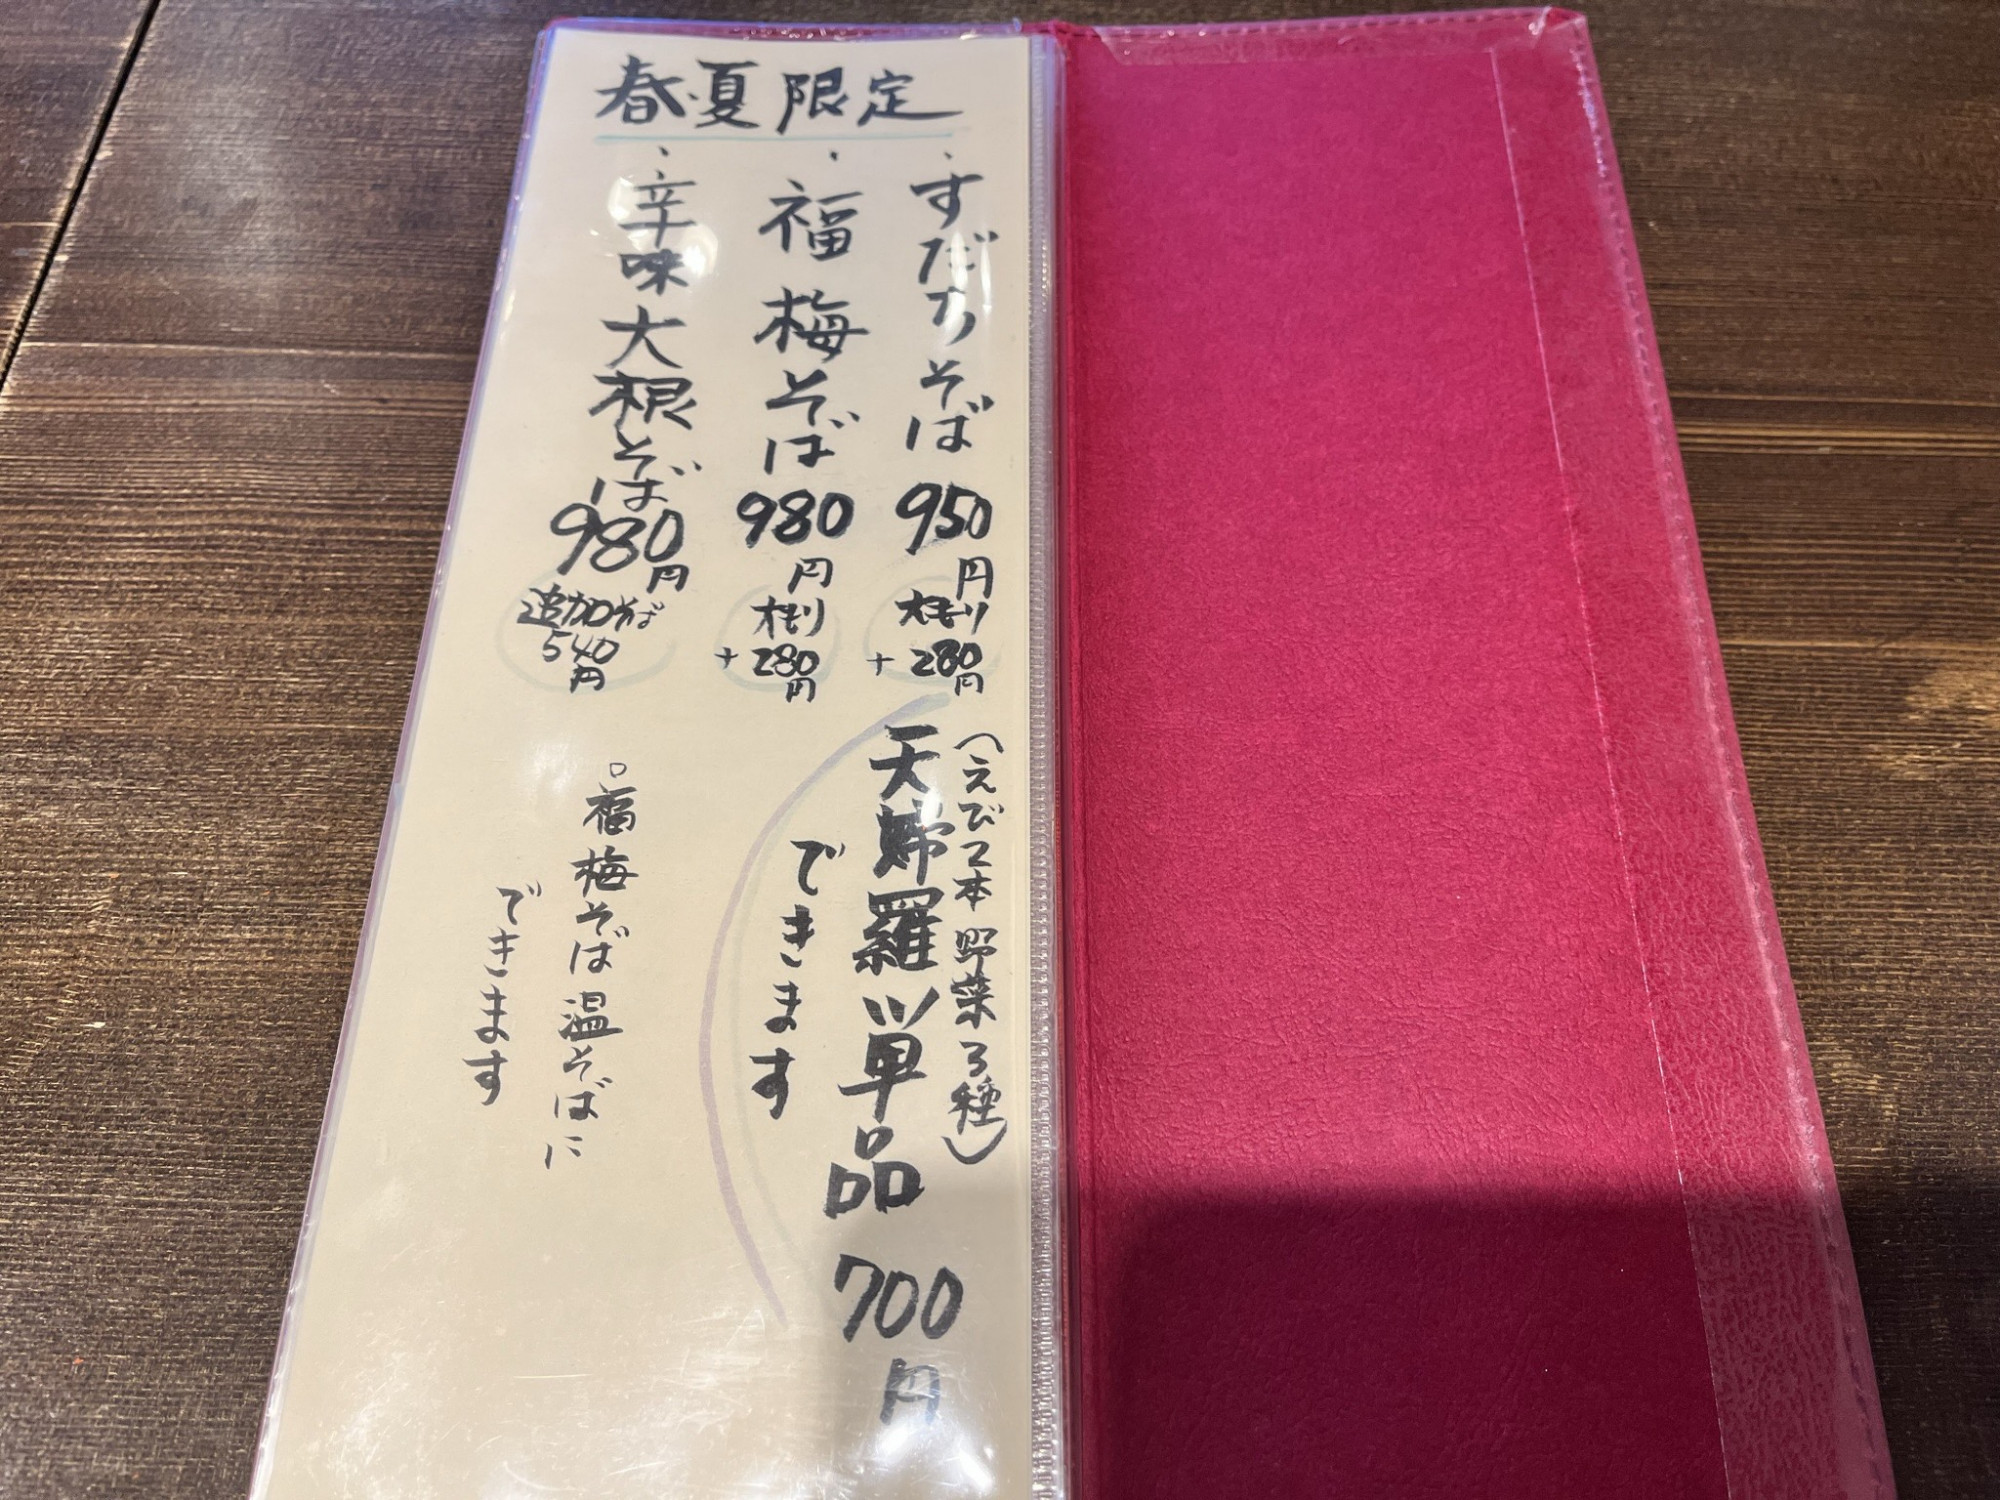 春・夏限定
・すだちそば 950円
大もり
+280円
・福梅そば 980円
大もり
+280円
・辛味大根そば 980円
追加そば
540円
(えび2本 野菜3種)
天婦羅単品 700円
できます
。福梅そば温そばに
できます